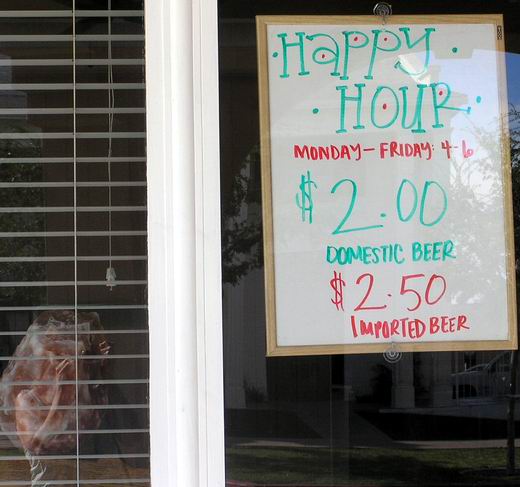 HAPPY
HOUR
MONDAY - FRIDAY: 4-6
$2.00
DOMESTIC BEER
$2.50
IMPORTED BEER